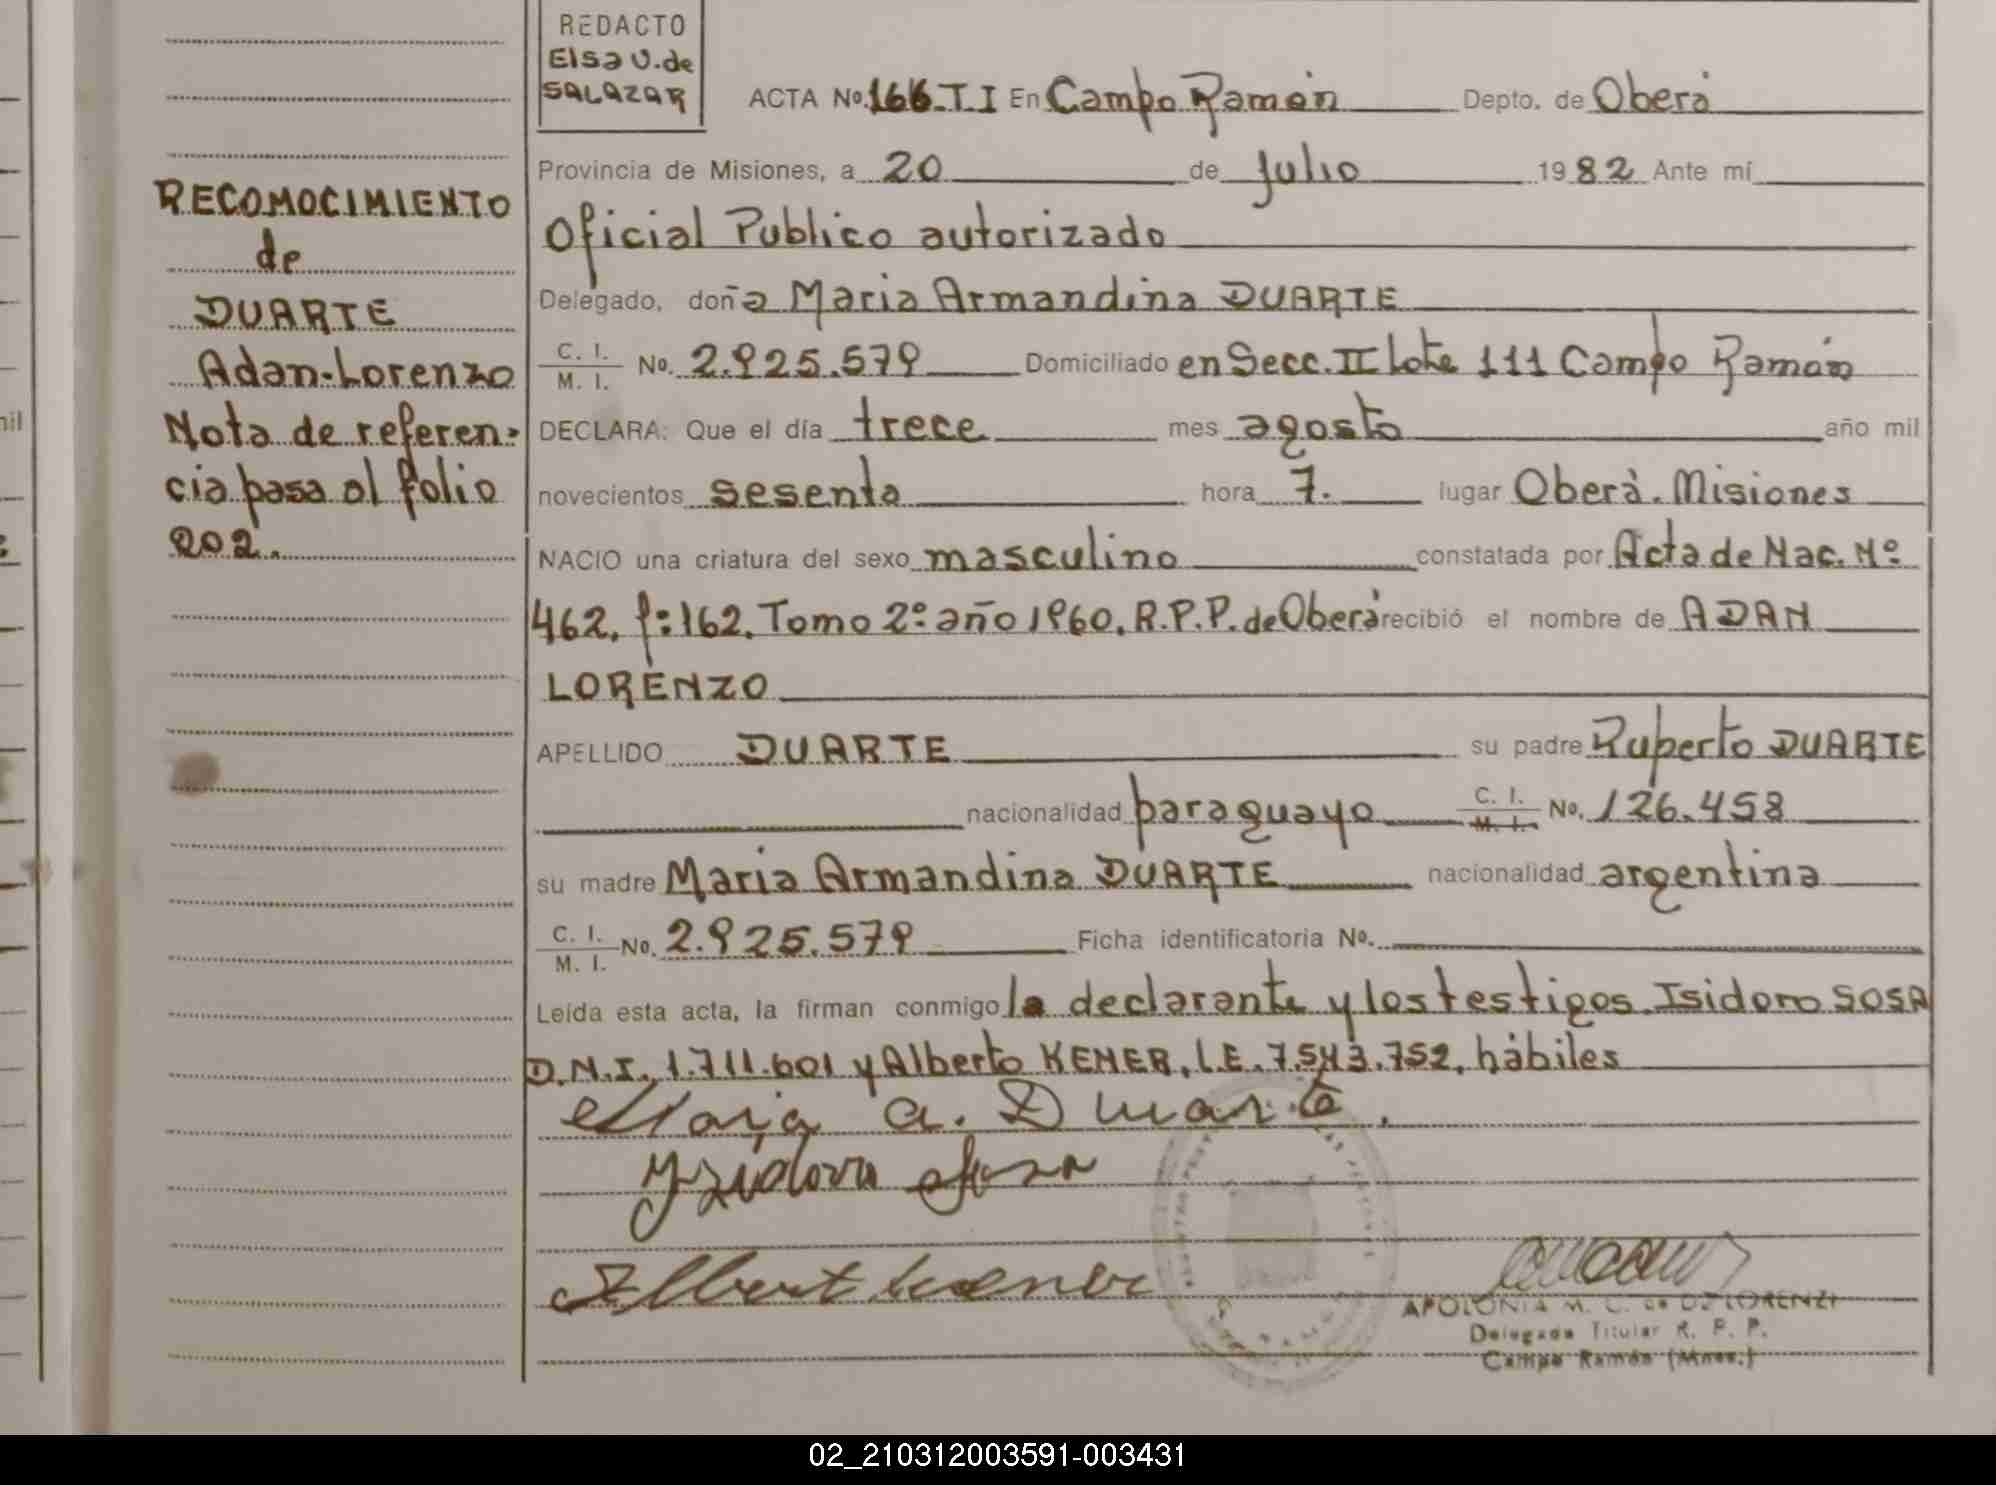 REDACTO
Elsa V. de
SALAZAR
ACTA No. 166. T I En Campo Ramón Depto. de Oberá
Provincia de Misiones, a 20 de Julio 1982 Ante mí
Oficial Publico autorizado
Delegado, doña Maria Armandina DUARTE
C. I. / M. I. No. 2.925.579 Domiciliado en Secc. II Lote 111 Campo Ramón
DECLARA: Que el día trece mes agosto año mil
novecientos sesenta hora 7. lugar Oberà. Misiones
NACIO una criatura del sexo masculino constatada por Acta de Nac. Nº
462, f: 162, Tomo 2º año 1960, R.P.P. de Oberá recibió el nombre de ADAN
LORENZO
APELLIDO DUARTE su padre Ruperto DUARTE
nacionalidad paraguayo C. I. / M. I. No. 126.458
su madre Maria Armandina DUARTE nacionalidad argentina
C. I. / M. I. No. 2.925.579 Ficha identificatoria No.
Leída esta acta, la firman conmigo la declarante y los testigos. Isidoro SOSA
D.N.I. 1.711.601 y Alberto KENER, L.E. 7.543.752, hábiles
Maria A. Duarte.
Yzidoro Sosa
Albert Kener
APOLONIA M. C. de DE LORENZI
Delegada Titular R. P. P.
Campo Ramón (Mnes.)
RECONOCIMIENTO
de
DUARTE
Adan-Lorenzo
Nota de referen-
cia pasa al folio
202.
02_210312003591-003431